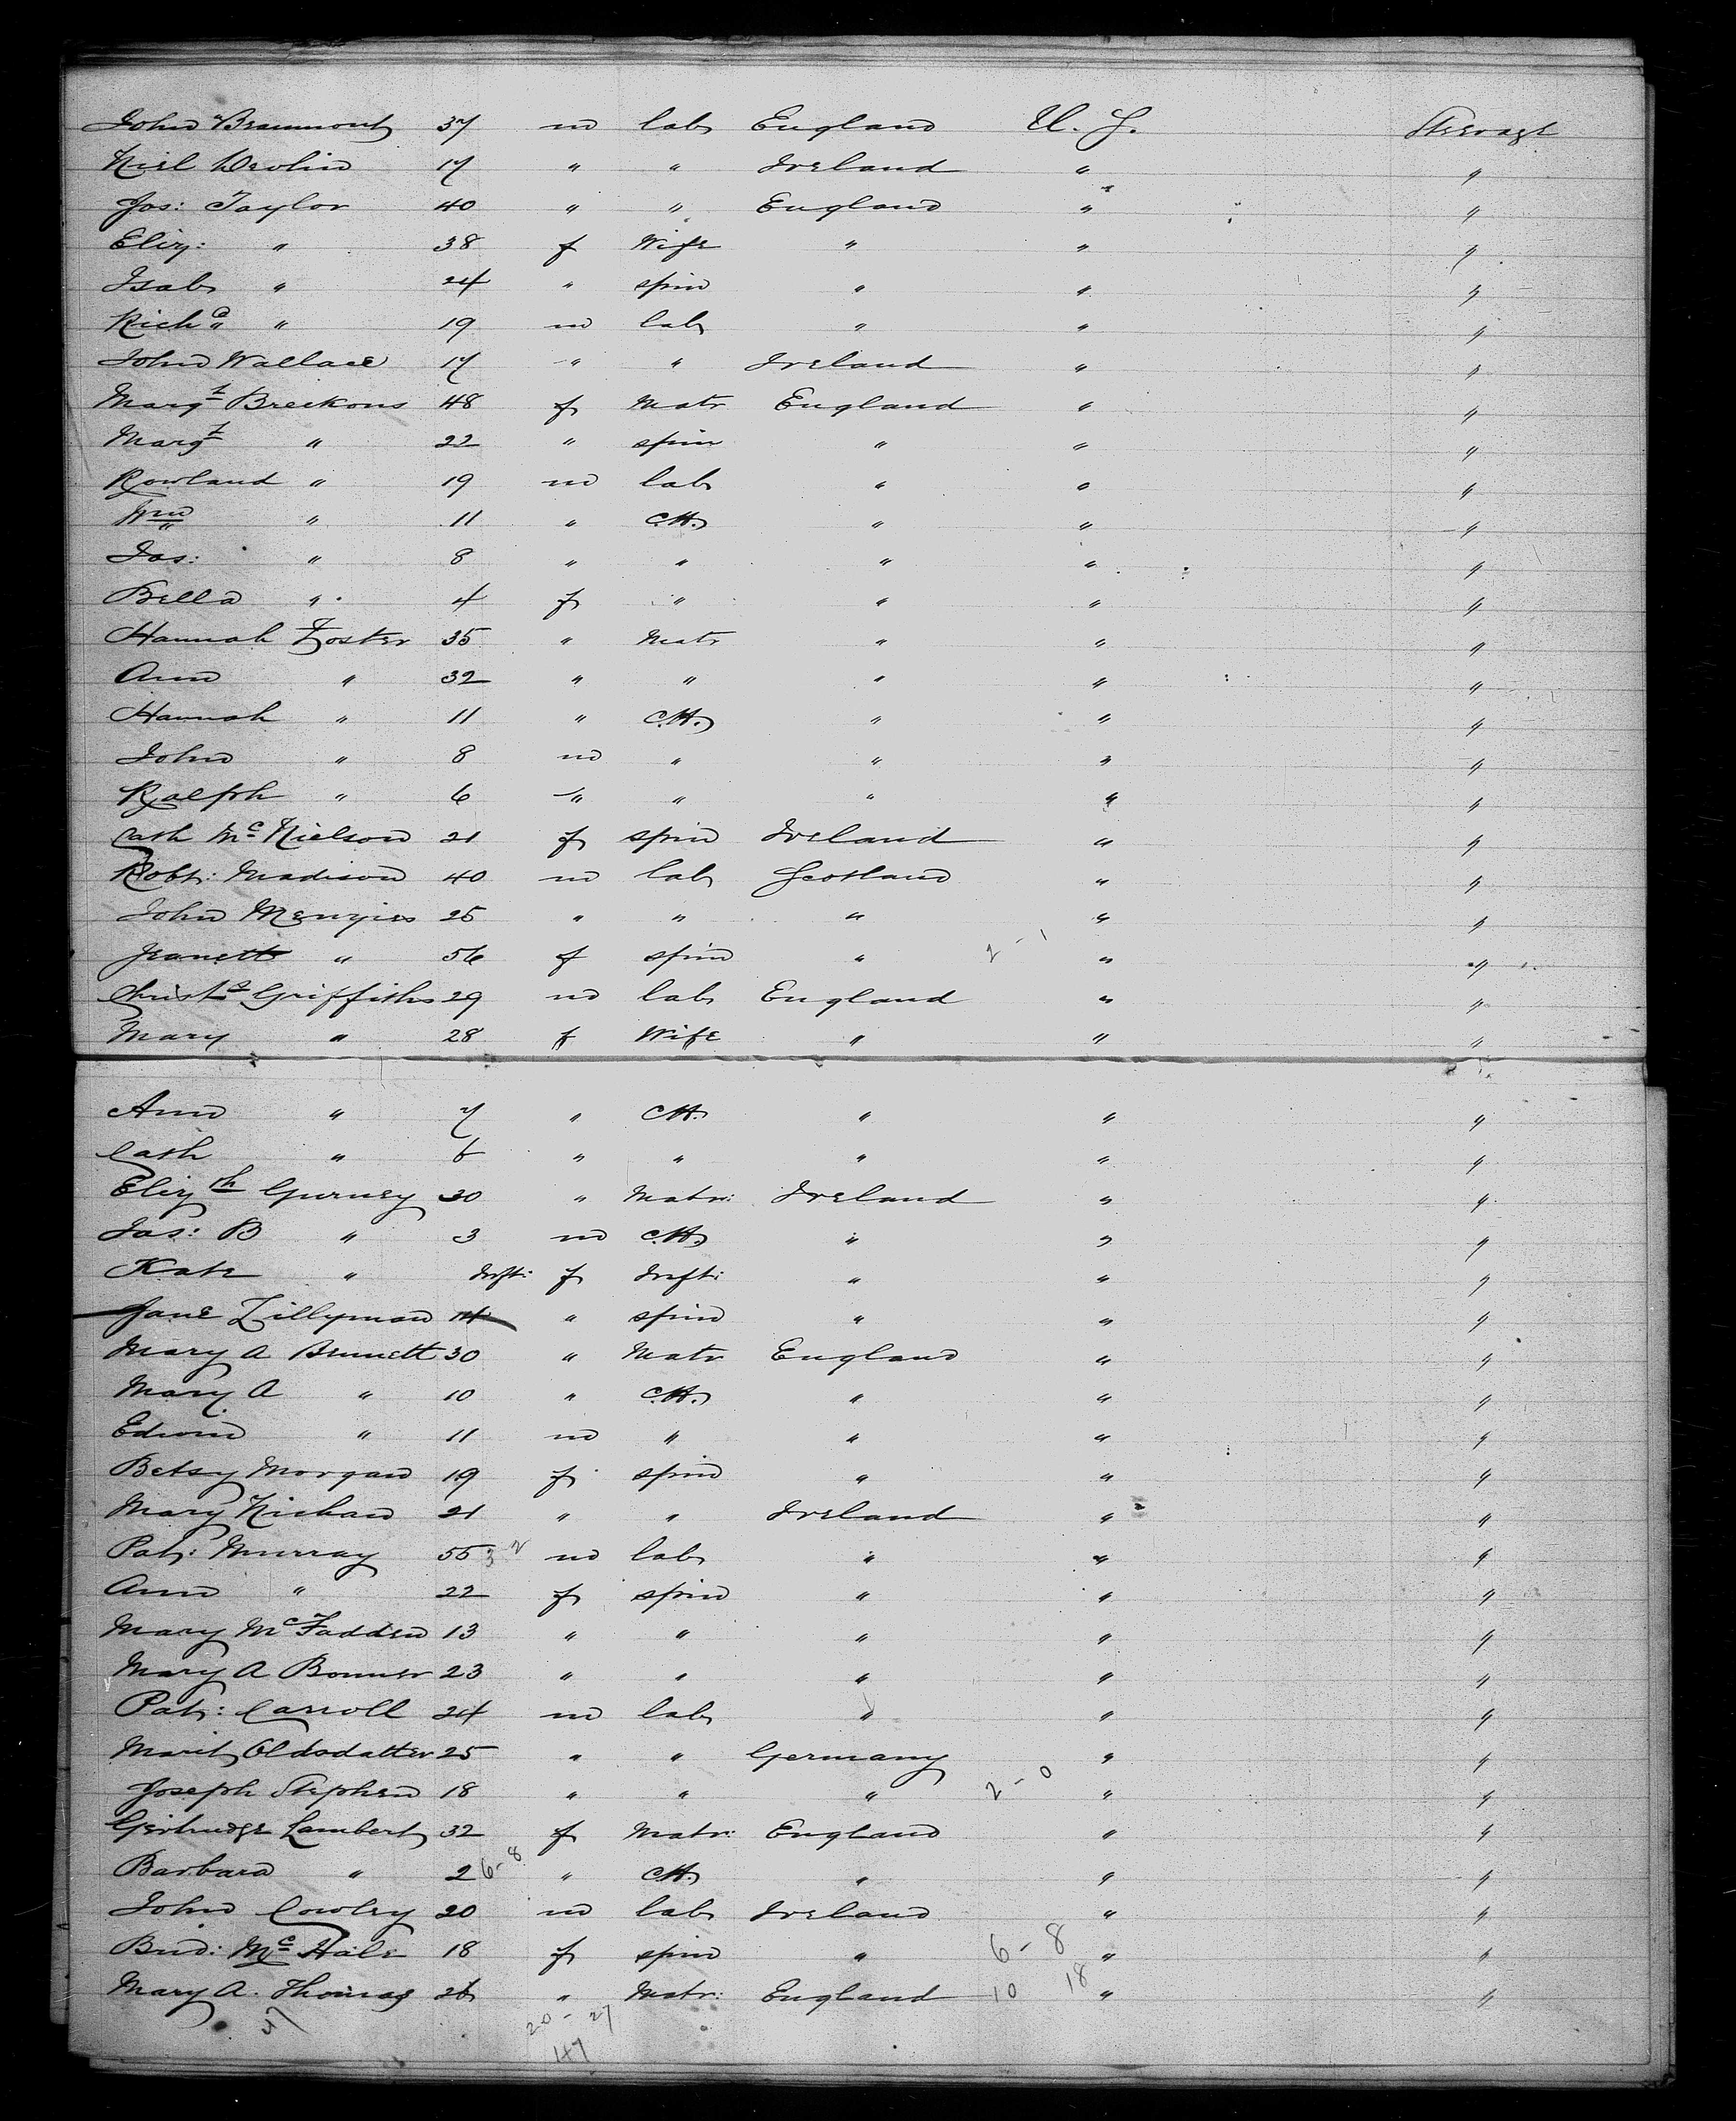 John Beaumont 37 m lab England U. S. Steerage
Niel Devlin 17 " " Ireland " "
Jos: Taylor 40 " " England " "
Eliz: " 38 f Wife " " "
Isab " 24 " spin " " "
Richd " 19 m lab " " "
John Wallace 17 " " Ireland " "
Margt Breckons 48 f Matr England " "
Margt " 22 " spin " " "
Rowland " 19 m lab " " "
Wm " 11 " Ch. " " "
Jas: " 8 " " " " "
Bella " 4 f " " " "
Hannah Foster 35 " Matr " " "
Ann " 32 " " " " "
Hannah " 11 " Ch. " " "
John " 8 m " " " "
Ralph " 6 " " " " "
Cath McNielson 21 f spin Ireland " "
Robt: Madison 40 m lab Scotland " "
John Menzies 25 " " " " "
Jeanett " 56 f spin " 2 - 1 " "
Christr Griffiths 29 m lab England " "
Mary " 28 f Wife " " "
Ann " 7 " Ch. " " "
Cath " 6 " " " " "
Elizth Gurney 30 " Matr: Ireland " "
Jas: B " 3 m Ch. " " "
Kate " Inft: f Inft: " " "
Jane Lillyman 14 " spin " " "
Mary A Bennett 30 " Matr England " "
Mary A " 10 " Ch. " " "
Edwin " 11 m " " " "
Betsy Morgan 19 f spin " " "
Mary 21 " " Ireland " "
Pat: Murray 55 3 2 m lab " " "
Ann " 22 f spin " " "
Mary McFadden 13 " " " " "
Mary A Bonner 23 " " " " "
Pat: Carroll 24 m lab " " "
Marit Oldsdatter 25 " " Germany " "
Joseph Stephen 18 " " " 2 - 0 " "
Gertrudge Lambert 32 f Matr: England " "
Barbara " 2 6-8 " Ch. " " "
John Cowley 20 m lab Ireland " "
Brid: McHale 18 f spin " 6 - 8 " "
Mary A. Thomas 26 " Matr: England 10 18 " "
47 20 - 27
47